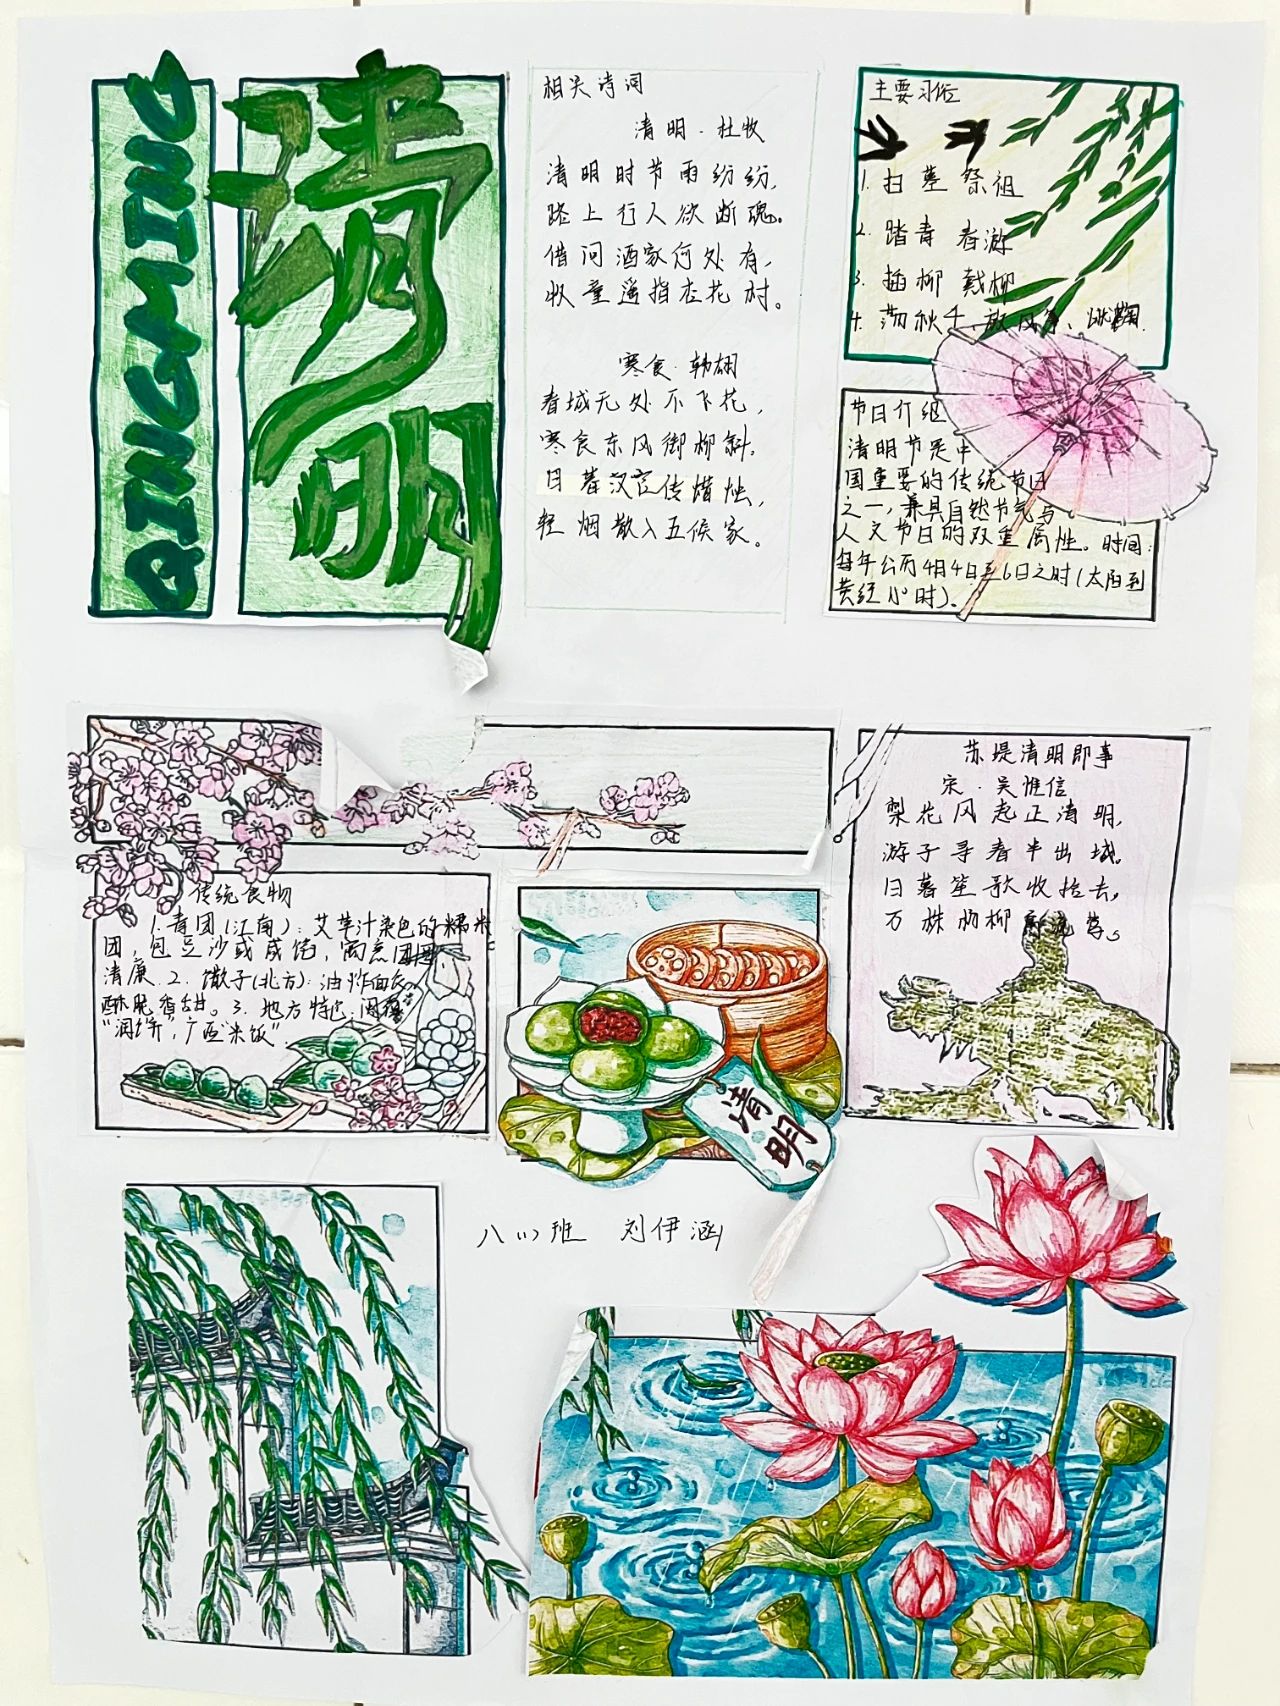 QINGMING
清明
相关诗词
清明·杜牧
清明时节雨纷纷,
路上行人欲断魂。
借问酒家何处有,
牧童遥指杏花村。
寒食·韩翃
春城无处不飞花,
寒食东风御柳斜。
日暮汉宫传蜡烛,
轻烟散入五侯家。
主要习俗
1. 扫墓 祭祖
2. 踏青 春游
3. 插柳 戴柳
4. 荡秋千、放风筝、
节日介绍
清明节是中
国重要的传统节日
之一,兼具自然节气与
人文节日的双重属性。时间:
每年公历4月4日至6日之时(太阳到
黄经 小时)。
传统食物
1. 青团(江南): 艾草汁染色的糯米
团,包豆沙或咸馅,寓意团圆
清廉. 2. 馓子(北方): 油炸面食
酥脆香甜。3. 地方特色: 闽
"润饼",广西"米饭".
清明
苏堤清明即事
宋·吴惟信
梨花风起正清明,
游子寻春半出城。
日暮笙歌收拾去,
万株杨柳
八(1)班 刘伊涵